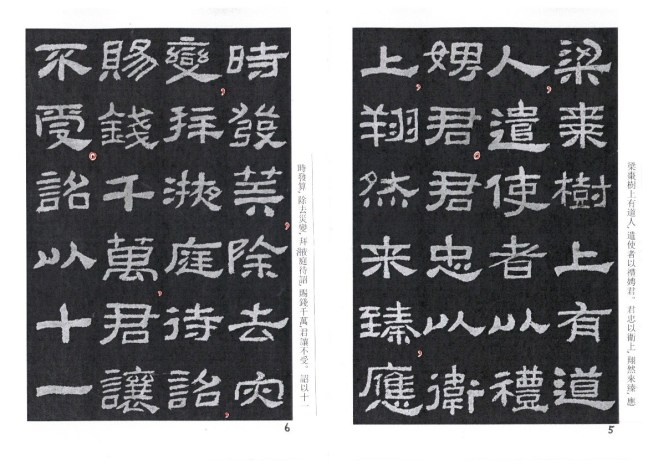 梁棗樹上有道人,遣使者以禮娉君。君忠以衛上,翔然来臻,應
梁棗樹上有道
人,遣使者以禮
娉君。君忠以衛
上,翔然来臻,應
5
時發算,除去災變,拜掖庭待詔,賜錢千萬,君讓不受。詔以十一
時發筭,除去灾
變,拜掖庭待詔,
賜錢千萬,君讓
不受。詔以十一
6